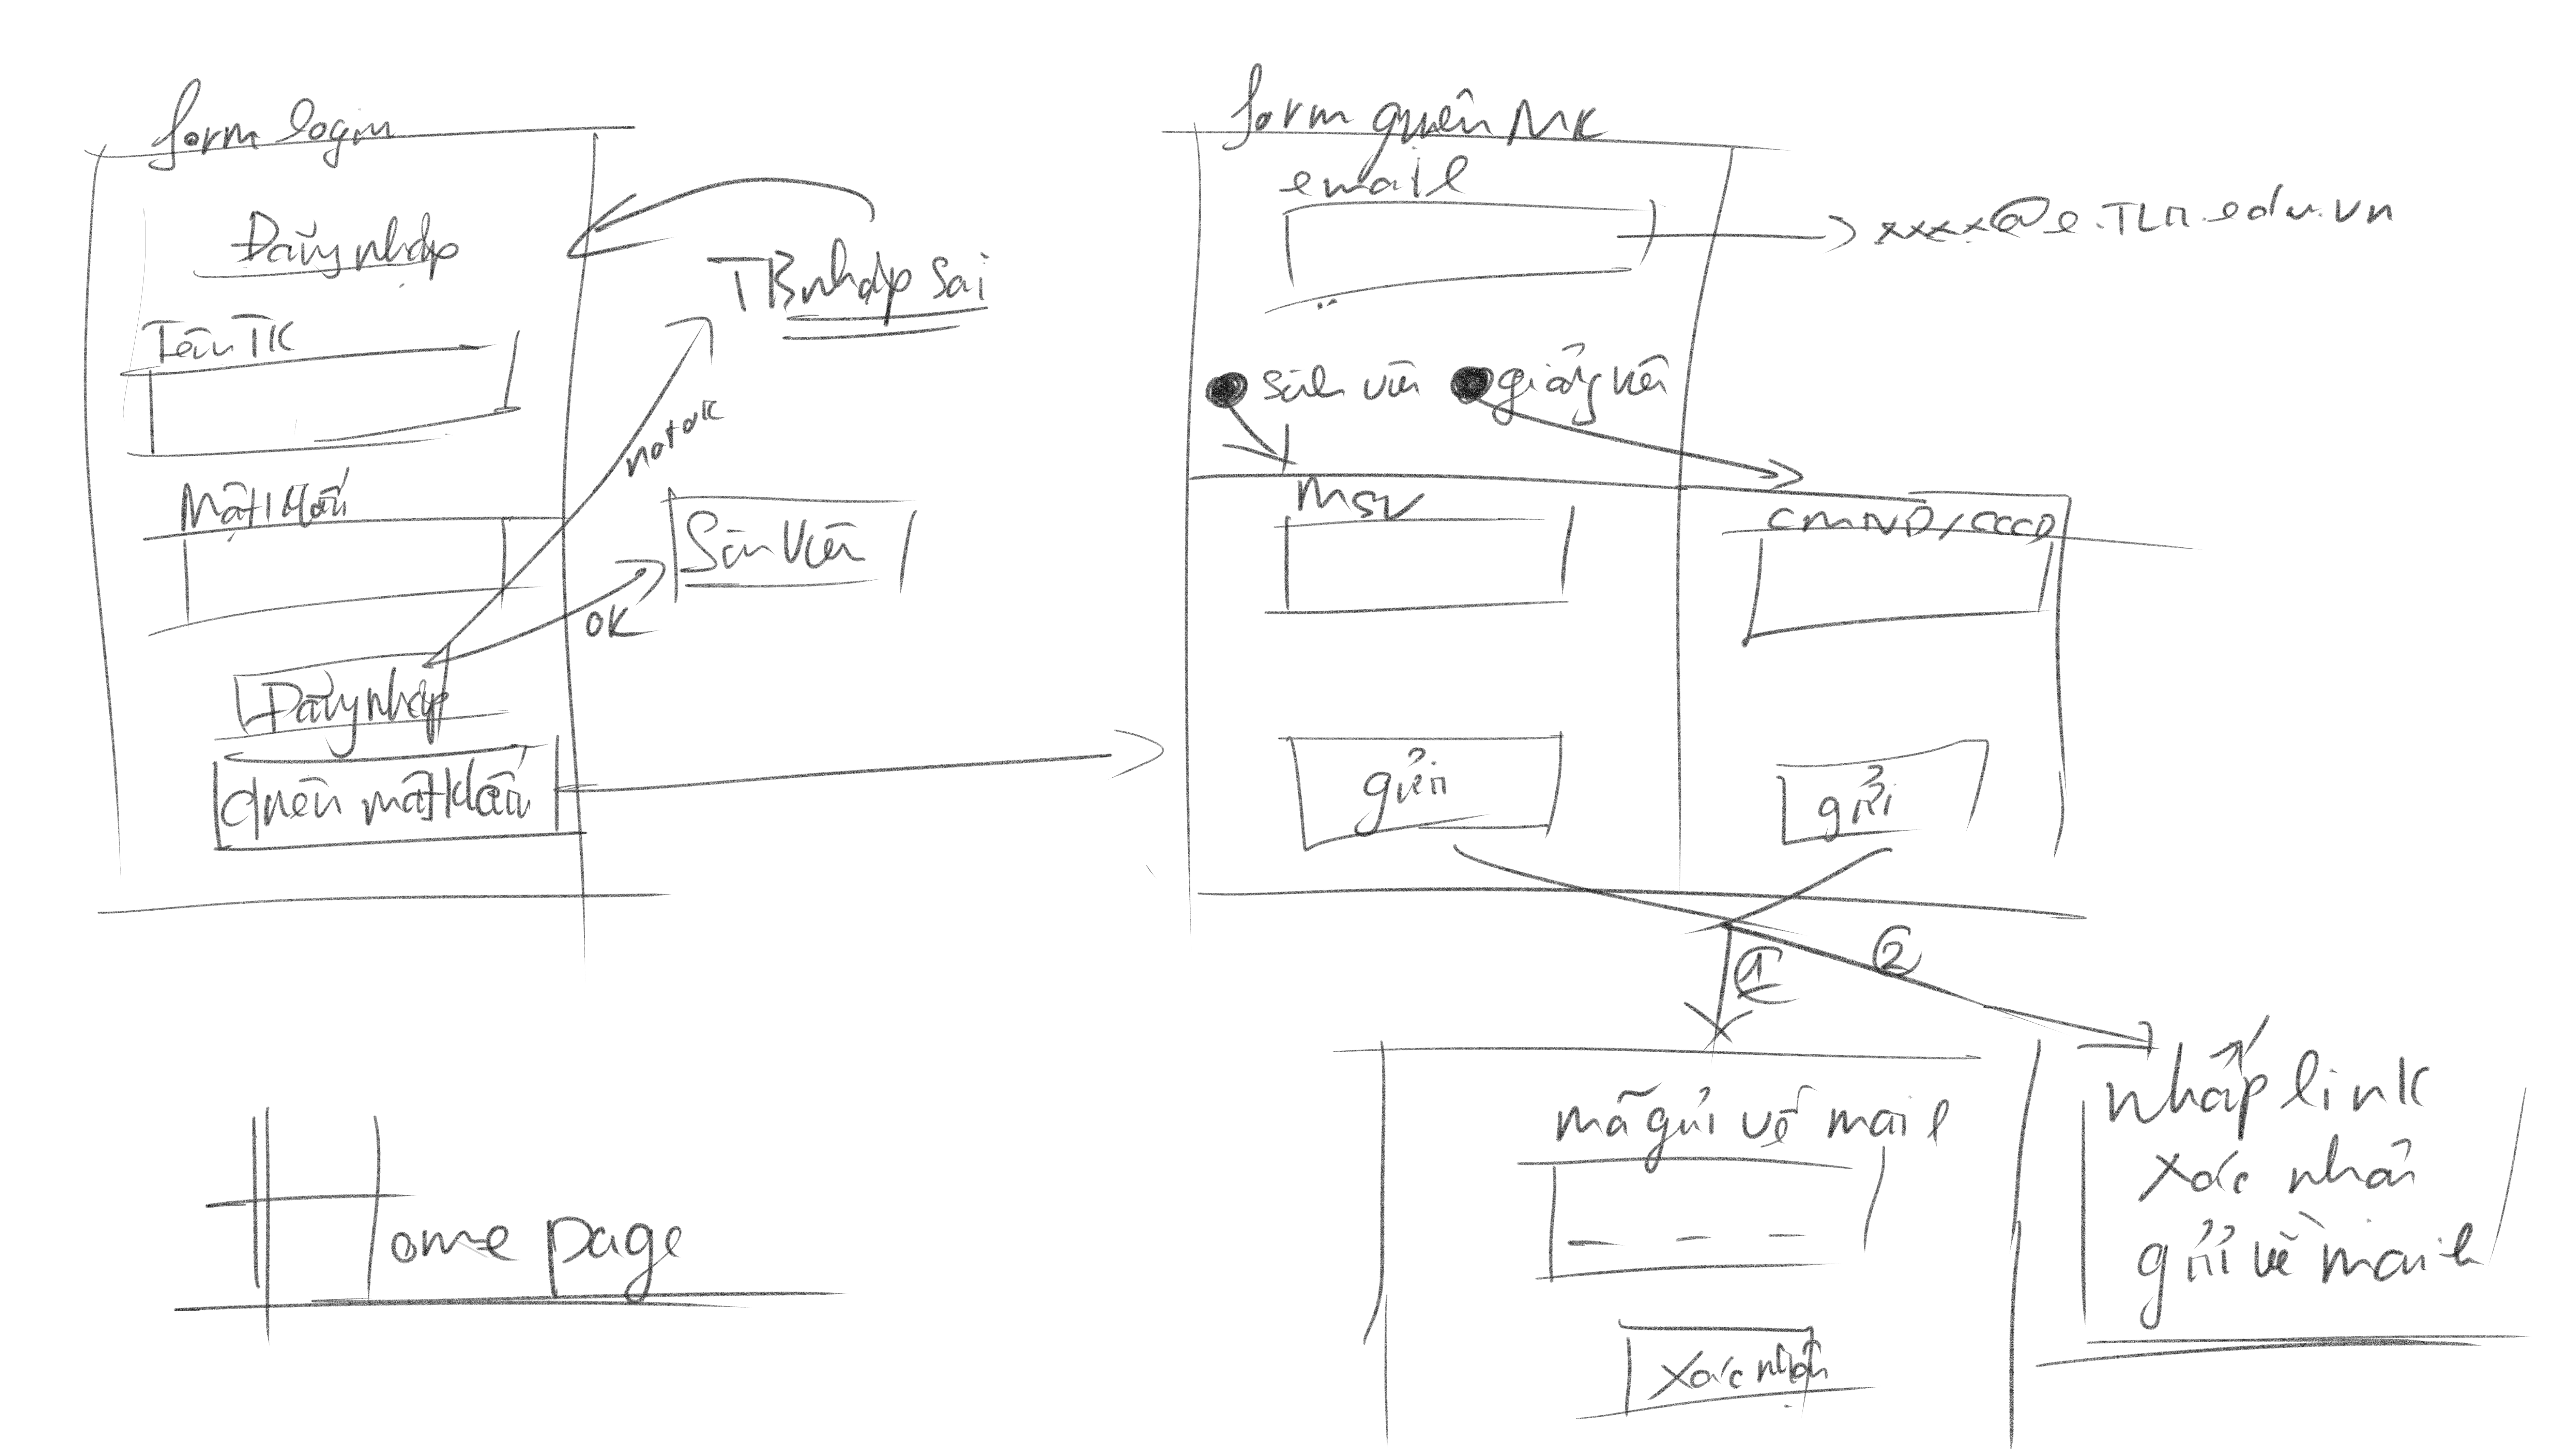 form login
Đăng nhập
Tên TK
Mật khẩu
Đăng nhập
Quên mật khẩu
TB nhập sai
not ok
OK
Sinh Viên
form quên MK
email
xxxx@e.TLU.edu.vn
sinh viên
giảng viên
MSV
CMND/CCCD
gửi
gửi
1
2
mã gửi về mail
- - -
xác nhận
nhấp link
xác nhận
gửi về mail
Home page